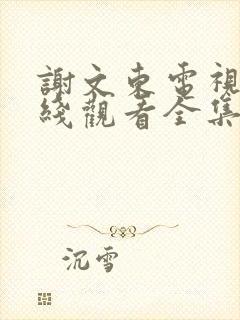 謝文東電視
綫觀看全集
沉雪